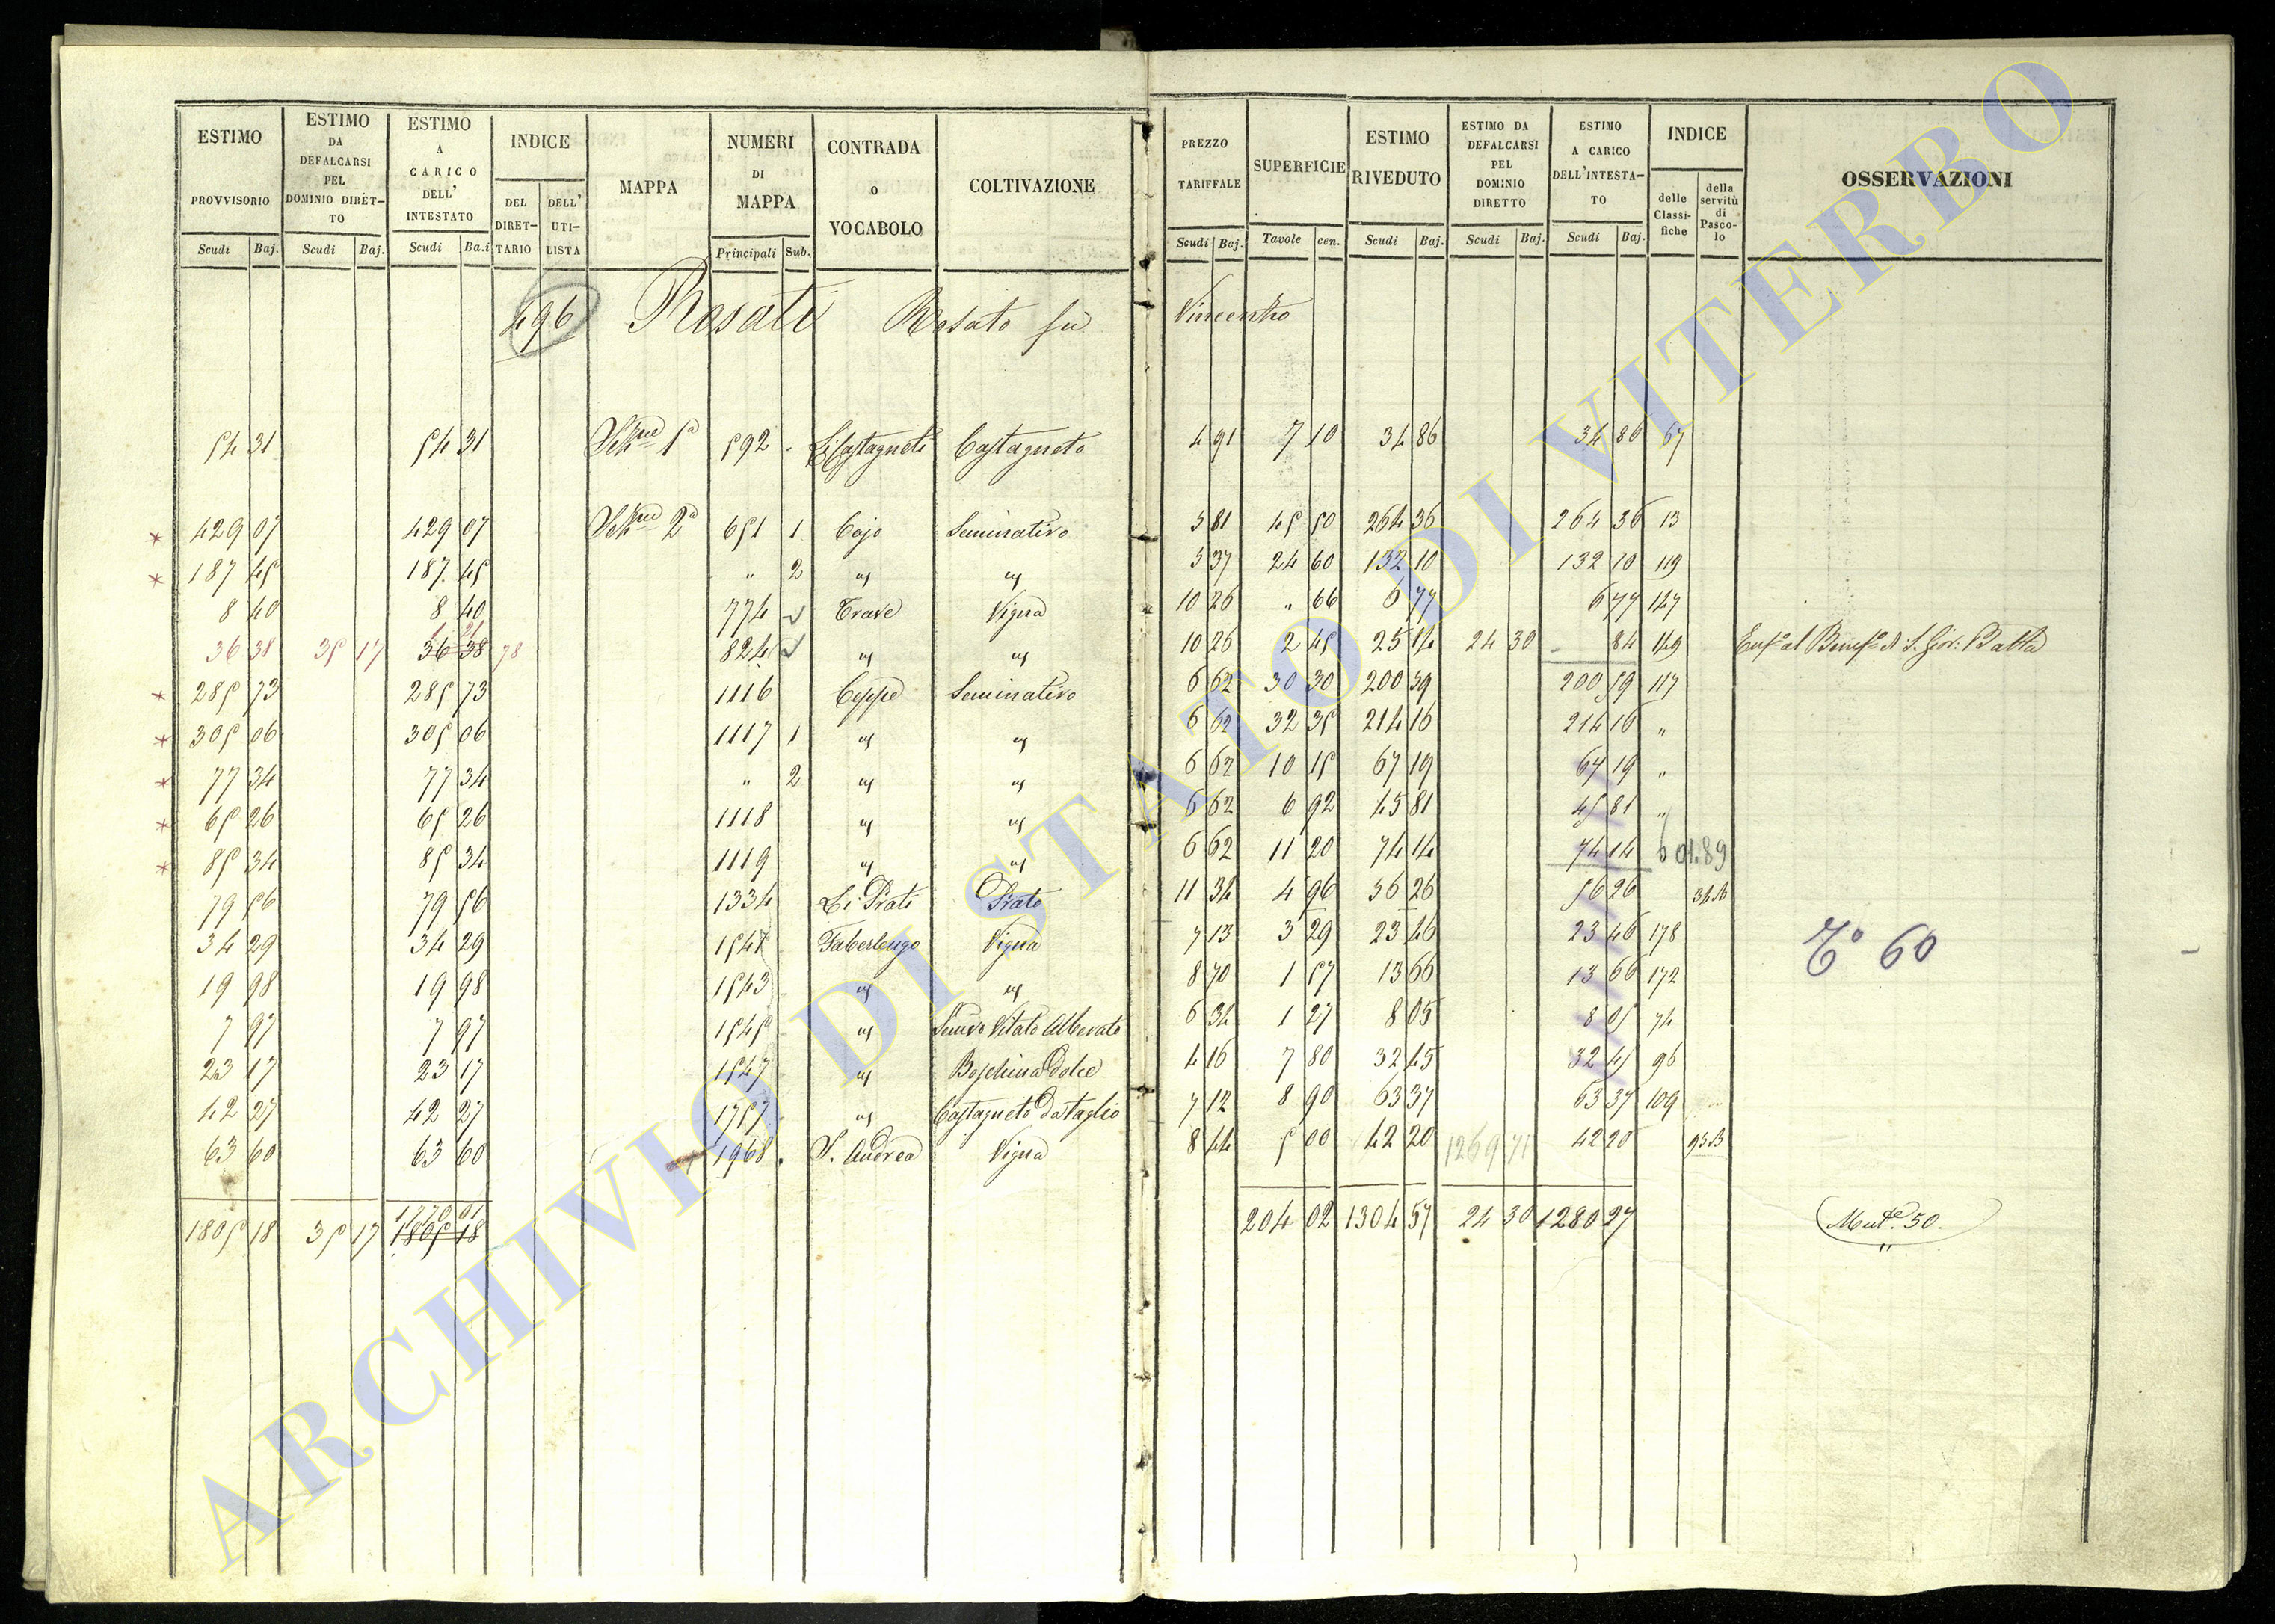 ESTIMO PROVVISORIO
ESTIMO DA DEFALCARSI PEL DOMINIO DIRETTO
ESTIMO A CARICO DELL' INTESTATO
INDICE
DEL DIRETTARIO
DELL' UTILISTA
MAPPA
NUMERI DI MAPPA
CONTRADA O VOCABOLO
COLTIVAZIONE
PREZZO TARIFFALE
SUPERFICIE
ESTIMO RIVEDUTO
ESTIMO DA DEFALCARSI PEL DOMINIO DIRETTO
ESTIMO A CARICO DELL'INTESTATO
INDICE
delle Classifiche
della servitù di Pascolo
OSSERVAZIONI
Scudi Baj. Scudi Baj. Scudi Ba.i Principali Sub. Scudi Baj. Tavole cen. Scudi Baj. Scudi Baj. Scudi Baj.
496 Rosati Rosato fu Vincenzo
54 31 54 31 1ª 592 Li Castagneti Castagneto 4 91 7 10 34 86 34 86 67
429 07 429 07 2ª 651 1 Cajo Seminativo 5 81 45 50 264 36 264 36 13
187 45 187 45 " 2 " " 5 37 24 60 132 10 132 10 119
8 40 8 40 774 Trave Vigna 10 26 " 66 6 77 6 77 147
36 38 35 17 36 38 1 21 78 824 " " 10 26 2 45 25 14 24 30 84 149 Enfª al Benefº di S. Gio: Batta
285 73 285 73 1116 Ceppe Seminativo 6 62 30 30 200 59 200 59 117
305 06 305 06 1117 1 " " 6 62 32 35 214 16 214 16 "
77 34 77 34 " 2 " " 6 62 10 15 67 19 67 19 "
65 26 65 26 1118 " " 6 62 6 92 45 81 45 81 "
85 34 85 34 1119 " " 6 62 11 20 74 14 74 14 601.89
79 56 79 56 1334 Li Prati Prato 11 34 4 96 56 26 56 26
34 29 34 29 Taberlengo Vigna 7 13 3 29 23 46 23 46 178
19 98 19 98 1543 " " 8 70 1 57 13 66 13 66 172
Tº 60
7 97 7 97 1545 " Semvo Vitato Alberato 6 34 1 27 8 05 8 05 74
23 17 23 17 1547 " Boschina Dolce 4 16 7 80 32 45 32 45 96
42 27 42 27 1757 " Castagneto da taglio 7 12 8 90 63 37 63 37 109
63 60 63 60 1968 S. Andrea Vigna 8 44 5 00 42 20 1269 71 42 20
1805 18 35 17 1770 01 1805 18 204 02 1304 57 24 30 1280 27 50.
ARCHIVIO DI STATO DI VITERBO